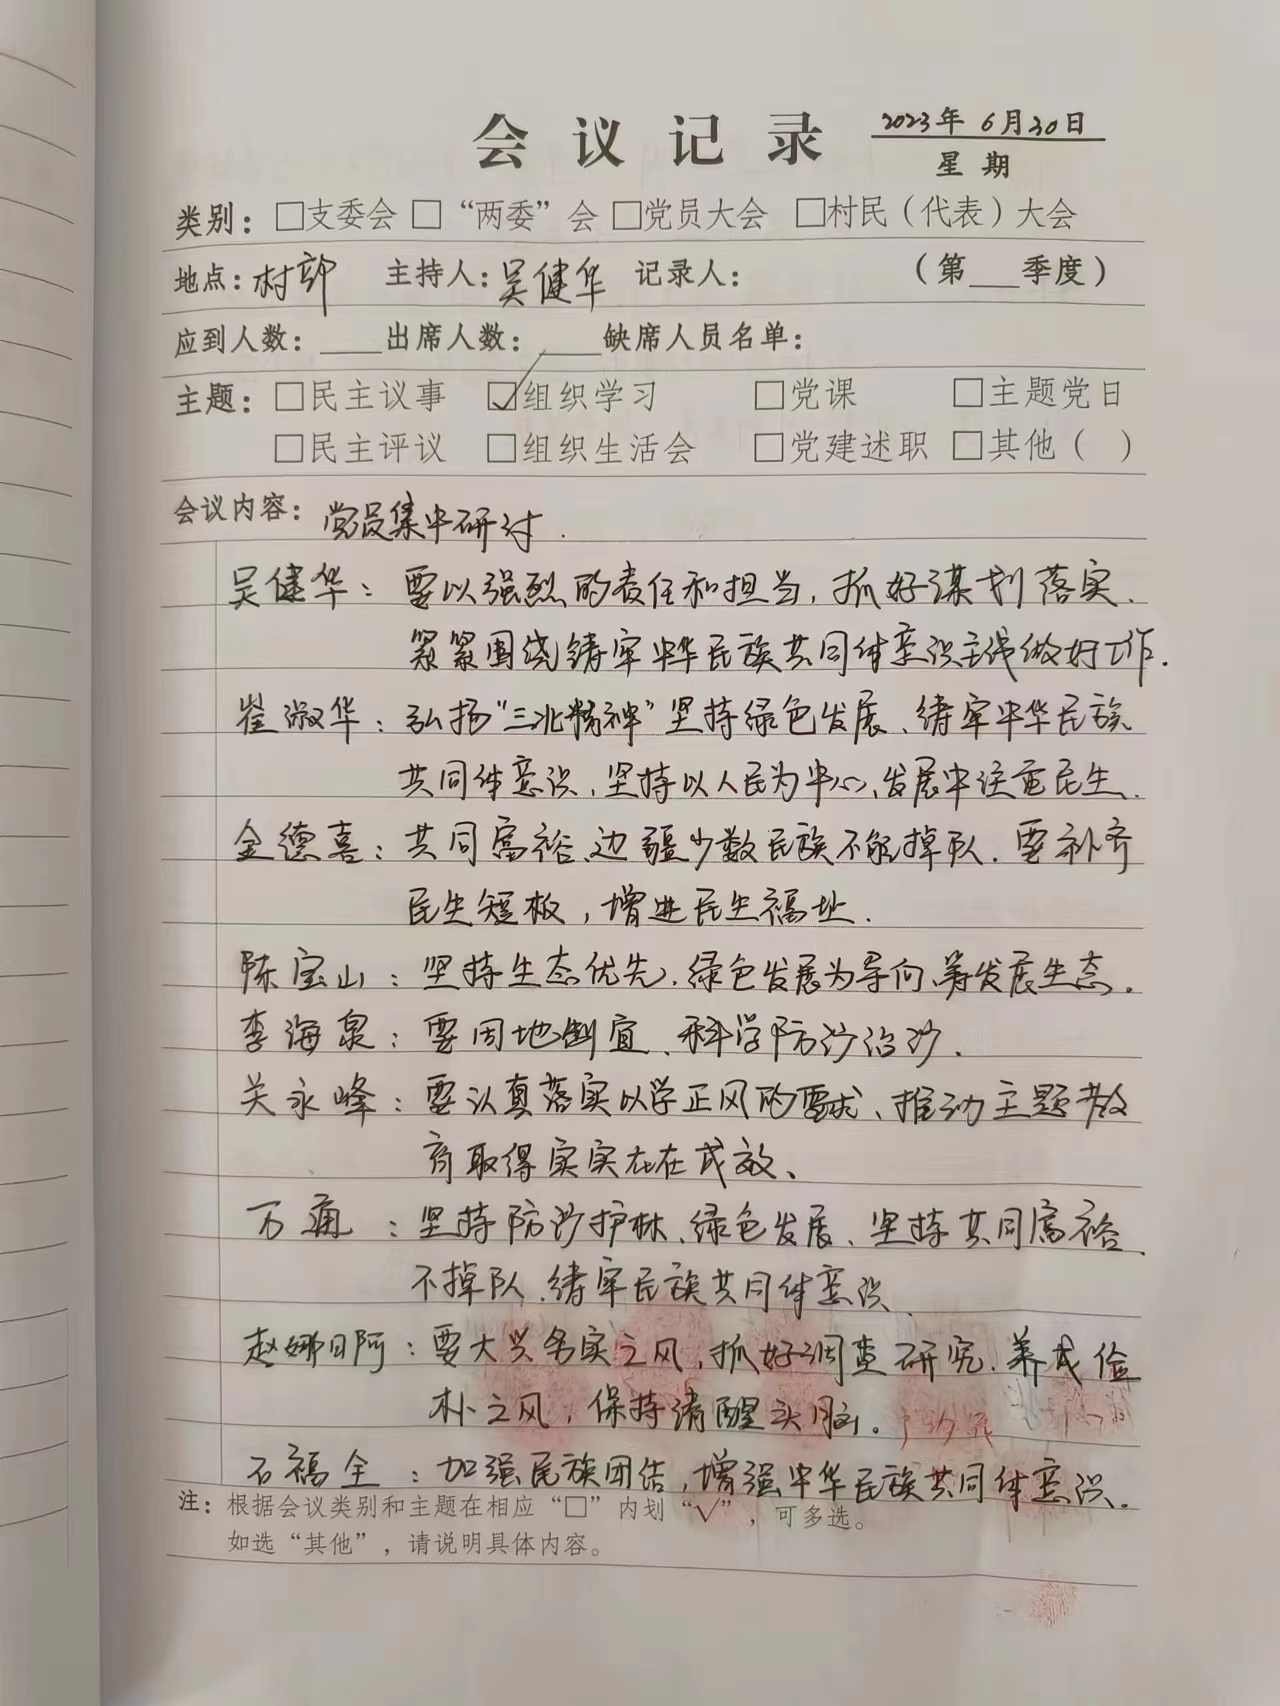 会议记录 2023年 6月30日
星期
类别：□支委会 □“两委”会 □党员大会 □村民（代表）大会
地点：村部 主持人：吴健华 记录人： （第___季度）
应到人数：____出席人数：____缺席人员名单：
主题：□民主议事 ☑组织学习 □党课 □主题党日
□民主评议 □组织生活会 □党建述职 □其他（ ）
会议内容：党员集中研讨.
吴健华：要以强烈的责任和担当，抓好谋划落实、
紧紧围绕铸牢中华民族共同体意识主线做好工作.
崔淑华：弘扬“三北精神”坚持绿色发展、铸牢中华民族
共同体意识，坚持以人民为中心、发展中注重民生、
金德喜：共同富裕、边疆少数民族不能掉队. 要补齐
民生短板，增进民生福址.
陈宝山：坚持生态优先，绿色发展为导向、发展生态.
李海泉：要因地制宜、科学防沙治沙.
关永峰：要认真落实以学正风的要求、推动主题教
育取得实实在在成效、
万通：坚持防沙护林、绿色发展、坚持共同富裕、
不掉队、铸牢民族共同体意识、
赵娜日阿：要大兴务实之风，抓好调查研究. 养成俭
朴之风，保持清醒头脑。
石福全：加强民族团结，增强中华民族共同体意识.
注：根据会议类别和主题在相应“□”内划“√”，可多选。
如选“其他”，请说明具体内容。